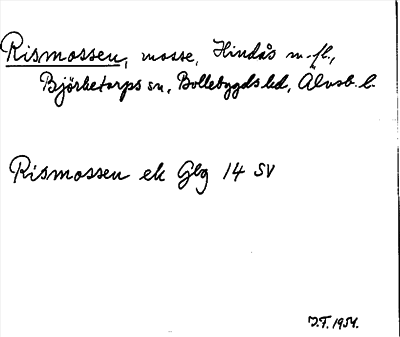 Rismossen, mosse, Hindås m.fl.,
Björketorps sn, Bollebygds hd, Älvsb. l.
Rismossen ek Gbg 14 SV
J.T. 1954.